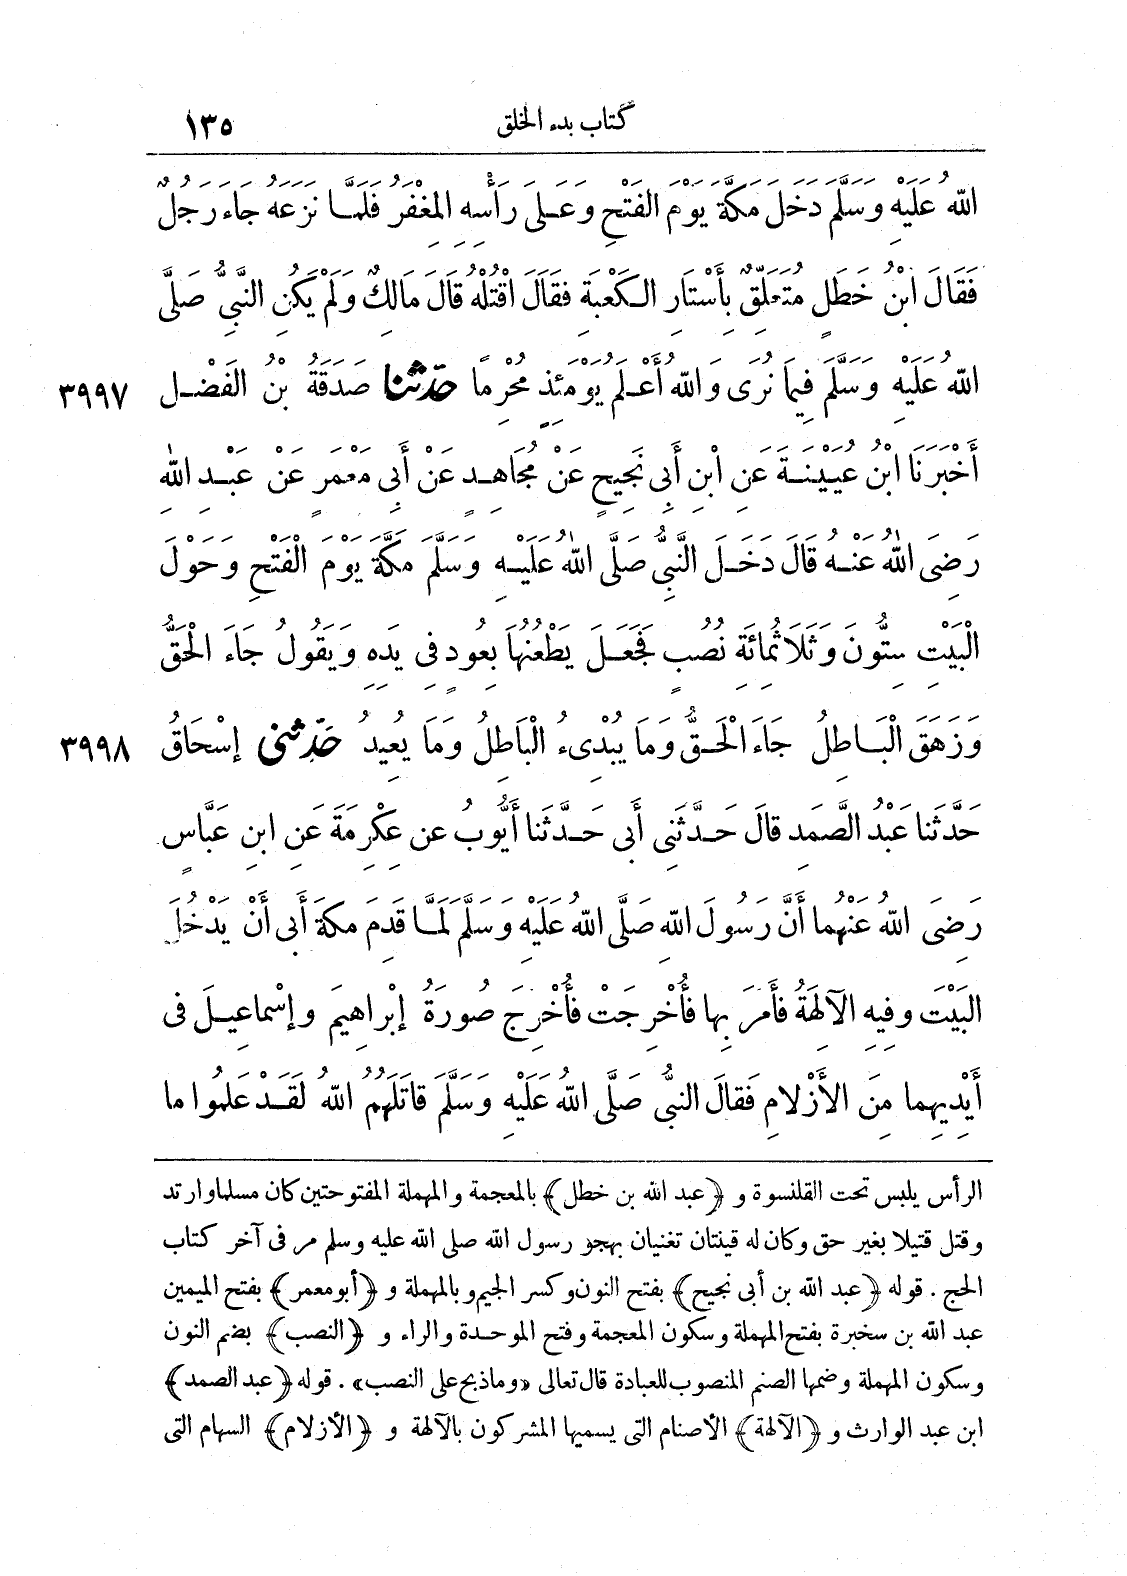 كتاب بدء الخلق ١٣٥
اللهُ عَلَيْهِ وَسَلَّمَ دَخَلَ مَكَّةَ يَوْمَ الفَتْحِ وَعَلَى رَأْسِهِ المِغْفَرُ فَلَمَّا نَزَعَهُ جَاءَ رَجُلٌ
فَقَالَ ابْنُ خَطَلٍ مُتَعَلِّقٌ بِأَسْتَارِ الكَعْبَةِ فَقَالَ اقْتُلْهُ قَالَ مَالِكٌ وَلَمْ يَكُنِ النَّبِيُّ صَلَّى
اللهُ عَلَيْهِ وَسَلَّمَ فِيمَا نُرَى وَاللهُ أَعْلَمُ يَوْمَئِذٍ مُحْرِمًا حَدَّثنا صَدَقَةُ بْنُ الفَضْلِ ٣٩٩٧
أَخْبَرَنَا ابْنُ عُيَيْنَةَ عَنِ ابْنِ أَبِي نَجِيحٍ عَنْ مُجَاهِدٍ عَنْ أَبِي مَعْمَرٍ عَنْ عَبْدِ اللهِ
رَضِيَ اللهُ عَنْهُ قَالَ دَخَلَ النَّبِيُّ صَلَّى اللهُ عَلَيْهِ وَسَلَّمَ مَكَّةَ يَوْمَ الْفَتْحِ وَحَوْلَ
الْبَيْتِ سِتُّونَ وَثَلَاثُمِائَةِ نُصُبٍ فَجَعَلَ يَطْعُنُهَا بِعُودٍ فِي يَدِهِ وَيَقُولُ جَاءَ الْحَقُّ
وَزَهَقَ الْبَاطِلُ جَاءَ الْحَقُّ وَمَا يُبْدِيءُ الْبَاطِلُ وَمَا يُعِيدُ حَدَّثني إِسْحَاقُ ٣٩٩٨
حَدَّثَنا عَبْدُ الصَّمَدِ قَالَ حَدَّثَنِي أَبِي حَدَّثَنا أَيُّوبُ عن عِكْرِمَةَ عَنِ ابنِ عَبَّاسٍ
رَضِيَ اللهُ عَنْهُما أَنَّ رَسُولَ اللهِ صَلَّى اللهُ عَلَيْهِ وَسَلَّمَ لَمَّا قَدِمَ مَكةَ أَبى أَنْ يَدْخُلَ
البَيْتَ وفِيهِ الآلِهَةُ فأَمَرَ بِها فَأُخْرِجَتْ فَأُخْرِجَ صُورَةُ إِبْراهِيمَ وإِسْماعِيلَ في
أَيْدِيهِما مِنَ الأَزْلامِ فَقالَ النبيُّ صَلَّى اللهُ عَلَيْهِ وَسَلَّمَ قاتَلَهُمُ اللهُ لَقَدْ عَلِمُوا ما
الرأس يلبس تحت القلنسوة و ﴿عبد الله بن خطل﴾ بالمعجمة والمهملة المفتوحتين كان مسلما وارتد
وقتل قتيلا بغير حق وكان له قينتان تغنيان بهجو رسول الله صلى الله عليه وسلم مر في آخر كتاب
الحج . قوله ﴿عبد الله بن أبي نجيح﴾ بفتح النون وكسر الجيم وبالمهملة و ﴿أبو معمر﴾ بفتح الميمين
عبد الله بن سخبرة بفتح المهملة وسكون المعجمة وفتح الموحدة والراء و ﴿النصب﴾ بضم النون
وسكون المهملة وضمها الصنم المنصوب للعبادة قال تعالى «وما ذبح على النصب» . قوله ﴿عبد الصمد﴾
ابن عبد الوارث و ﴿الآلهة﴾ الأصنام التي يسميها المشركون بالآلهة و ﴿الأزلام﴾ السهام التي